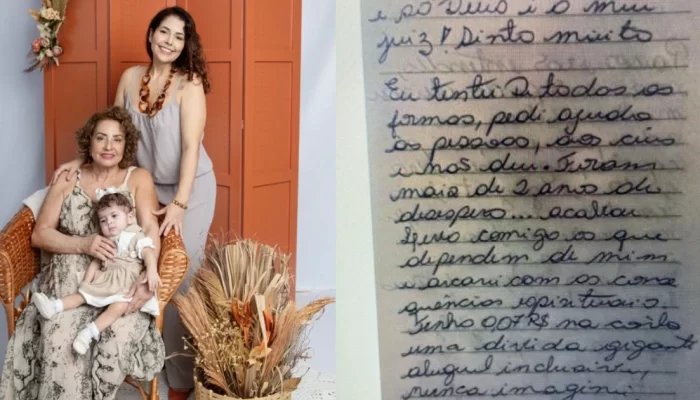 e só Deus é o meu
juiz! Sinto muito
Eu tentei de todas as
formas, pedi ajuda
as pessoas, aos céus
e nos deu. Foram
mais de 2 anos de
desespero... acabou
Levo comigo os que
dependem de mim
e arcarei com as conse
quências espirituais.
Tenho 0,07 R$ na conta
uma dívida gigante
aluguel inclusive,
nunca imaginei